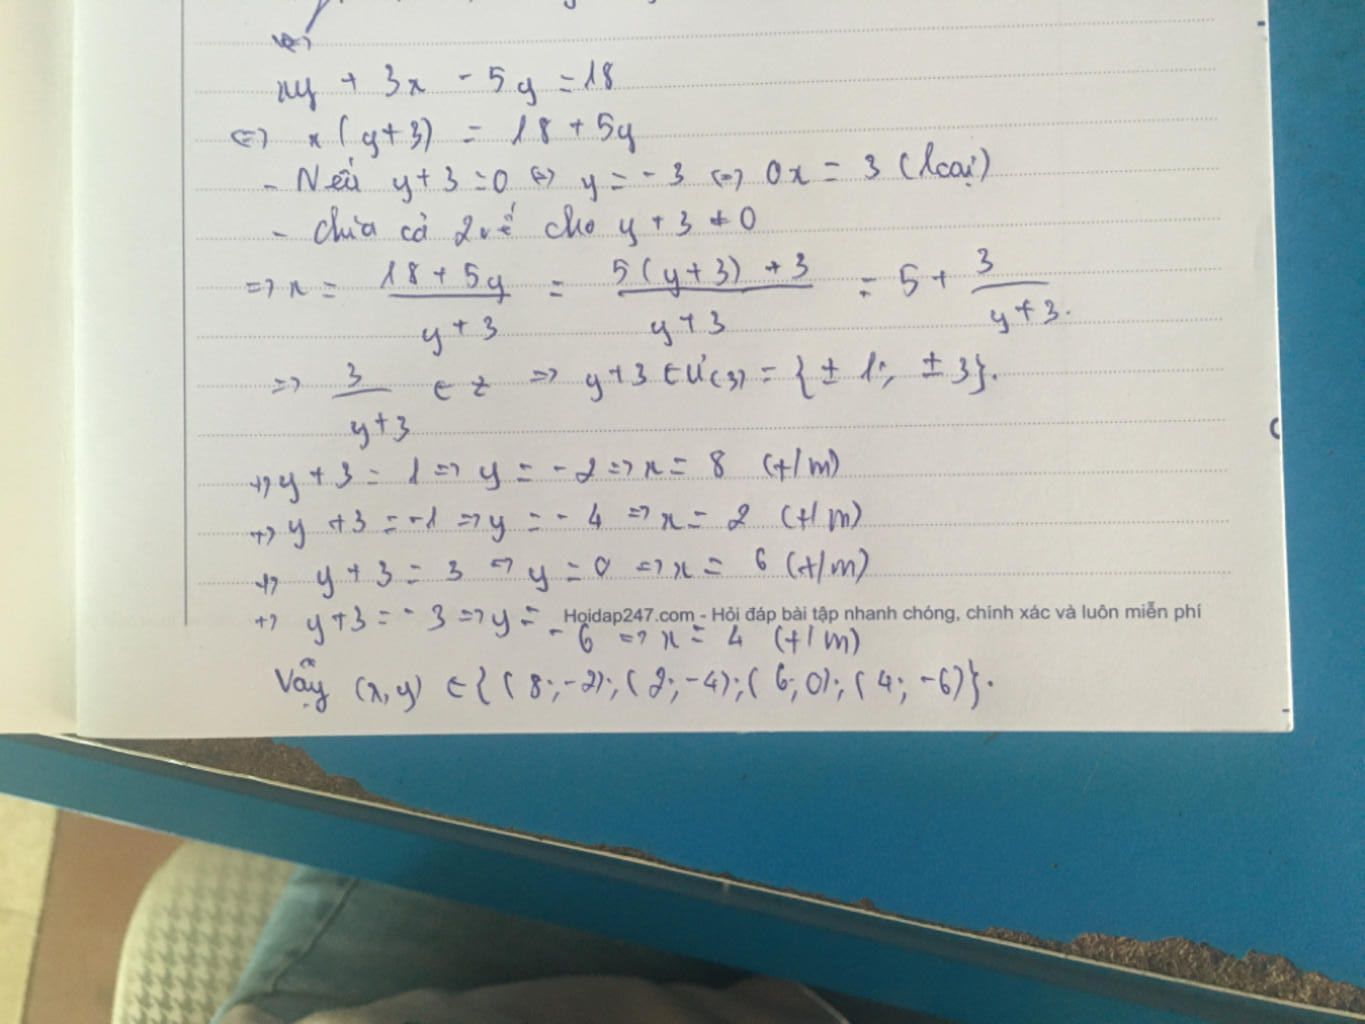 xy + 3x - 5y = 18
<=> x(y+3) = 18 + 5y
- Nếu y+3 = 0 <=> y = -3 <=> 0x = 3 (loại)
- chia cả 2 vế cho y + 3 ≠ 0
=> x = (18 + 5y)/(y + 3) = (5(y+3) + 3)/(y+3) = 5 + 3/(y+3).
=> 3/(y+3) ∈ Z => y+3 ∈ Ư(3) = {± 1; ± 3}.
+) y + 3 = 1 => y = -2 => x = 8 (t/m)
+) y + 3 = -1 => y = -4 => x = 2 (t/m)
+) y + 3 = 3 => y = 0 => x = 6 (t/m)
+) y+3 = -3 => y = -6 => x = 4 (t/m)
Hoidap247.com - Hỏi đáp bài tập nhanh chóng, chính xác và luôn miễn phí
Vậy (x,y) ∈ {(8;-2);(2;-4);(6;0);(4;-6)}.